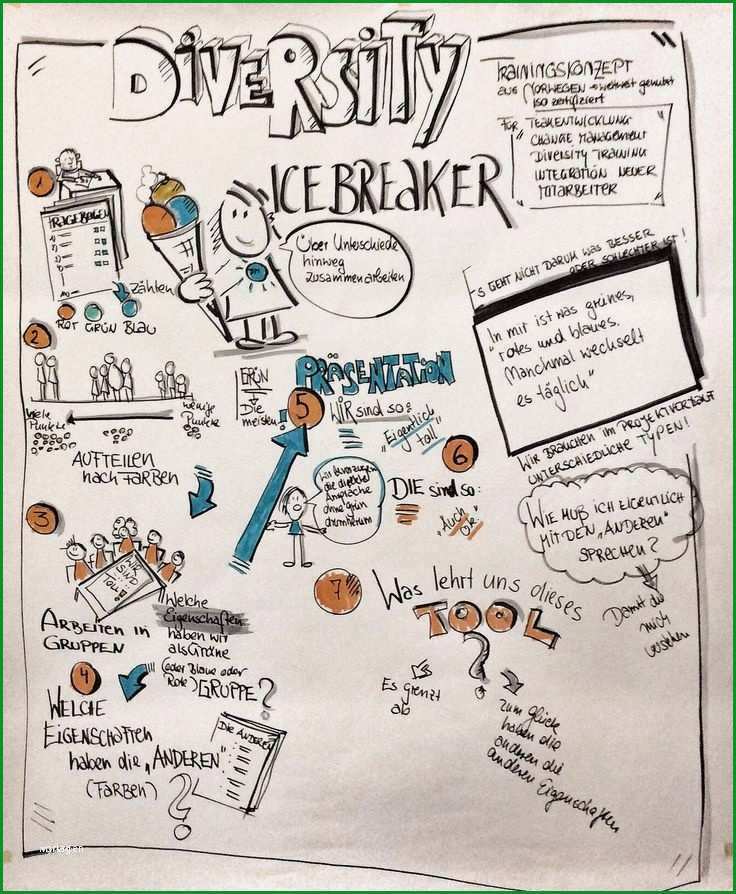 DIVERSITY
ICEBREAKER
TRAININGSKONZEPT
AUS NORWEGEN → weltweit genutzt
ISO zertifiziert
FÜR TEAMENTWICKLUNG
CHANGE MANAGEMENT
DIVERSITY TRAINING
INTEGRATION NEUER
MITARBEITER
1
FRAGEBOGEN
zählen
ROT GRÜN BLAU
Über Unterschiede
hinweg
zusammenarbeiten
ES GEHT NICHT DARUM WAS BESSER
ODER SCHLECHTER IST!
In mir ist was grünes,
"rotes und blaues.
Manchmal wechselt
es täglich"
WIR BRAUCHEN IM PROJEKTVERLAUF
UNTERSCHIEDLICHE TYPEN!
WIE MUß ICH EIGENTLICH
MIT DEN „ANDEREN"
SPRECHEN?
Damit die
mich
verstehen
2
viele
Punkte
wenige
Punkte
AUFTEILEN
nach FARBEN
3
WIR
SIND
TOLL!
ARBEITEN IN
GRUPPEN
Welche
Eigenschaften
haben wir
als Grüne
(oder Blaue oder
Rote) GRUPPE?
4
WELCHE
EIGENSCHAFTEN
haben die „ANDEREN"
(FARBEN)
?
DIE ANDEREN
GRÜN
Die
meisten!
PRÄSENTATION
5
WIR sind so:
"Eigentlich
toll"
wir bevorzugen
die direkte
Ansprache
ohne grün
drumherum
6
DIE sind so:
"Auch
OK"
7
Was lehrt uns dieses
TOOL
?
Es grenzt
ab
zum Glück
haben die
anderen die
anderen Eigenschaften